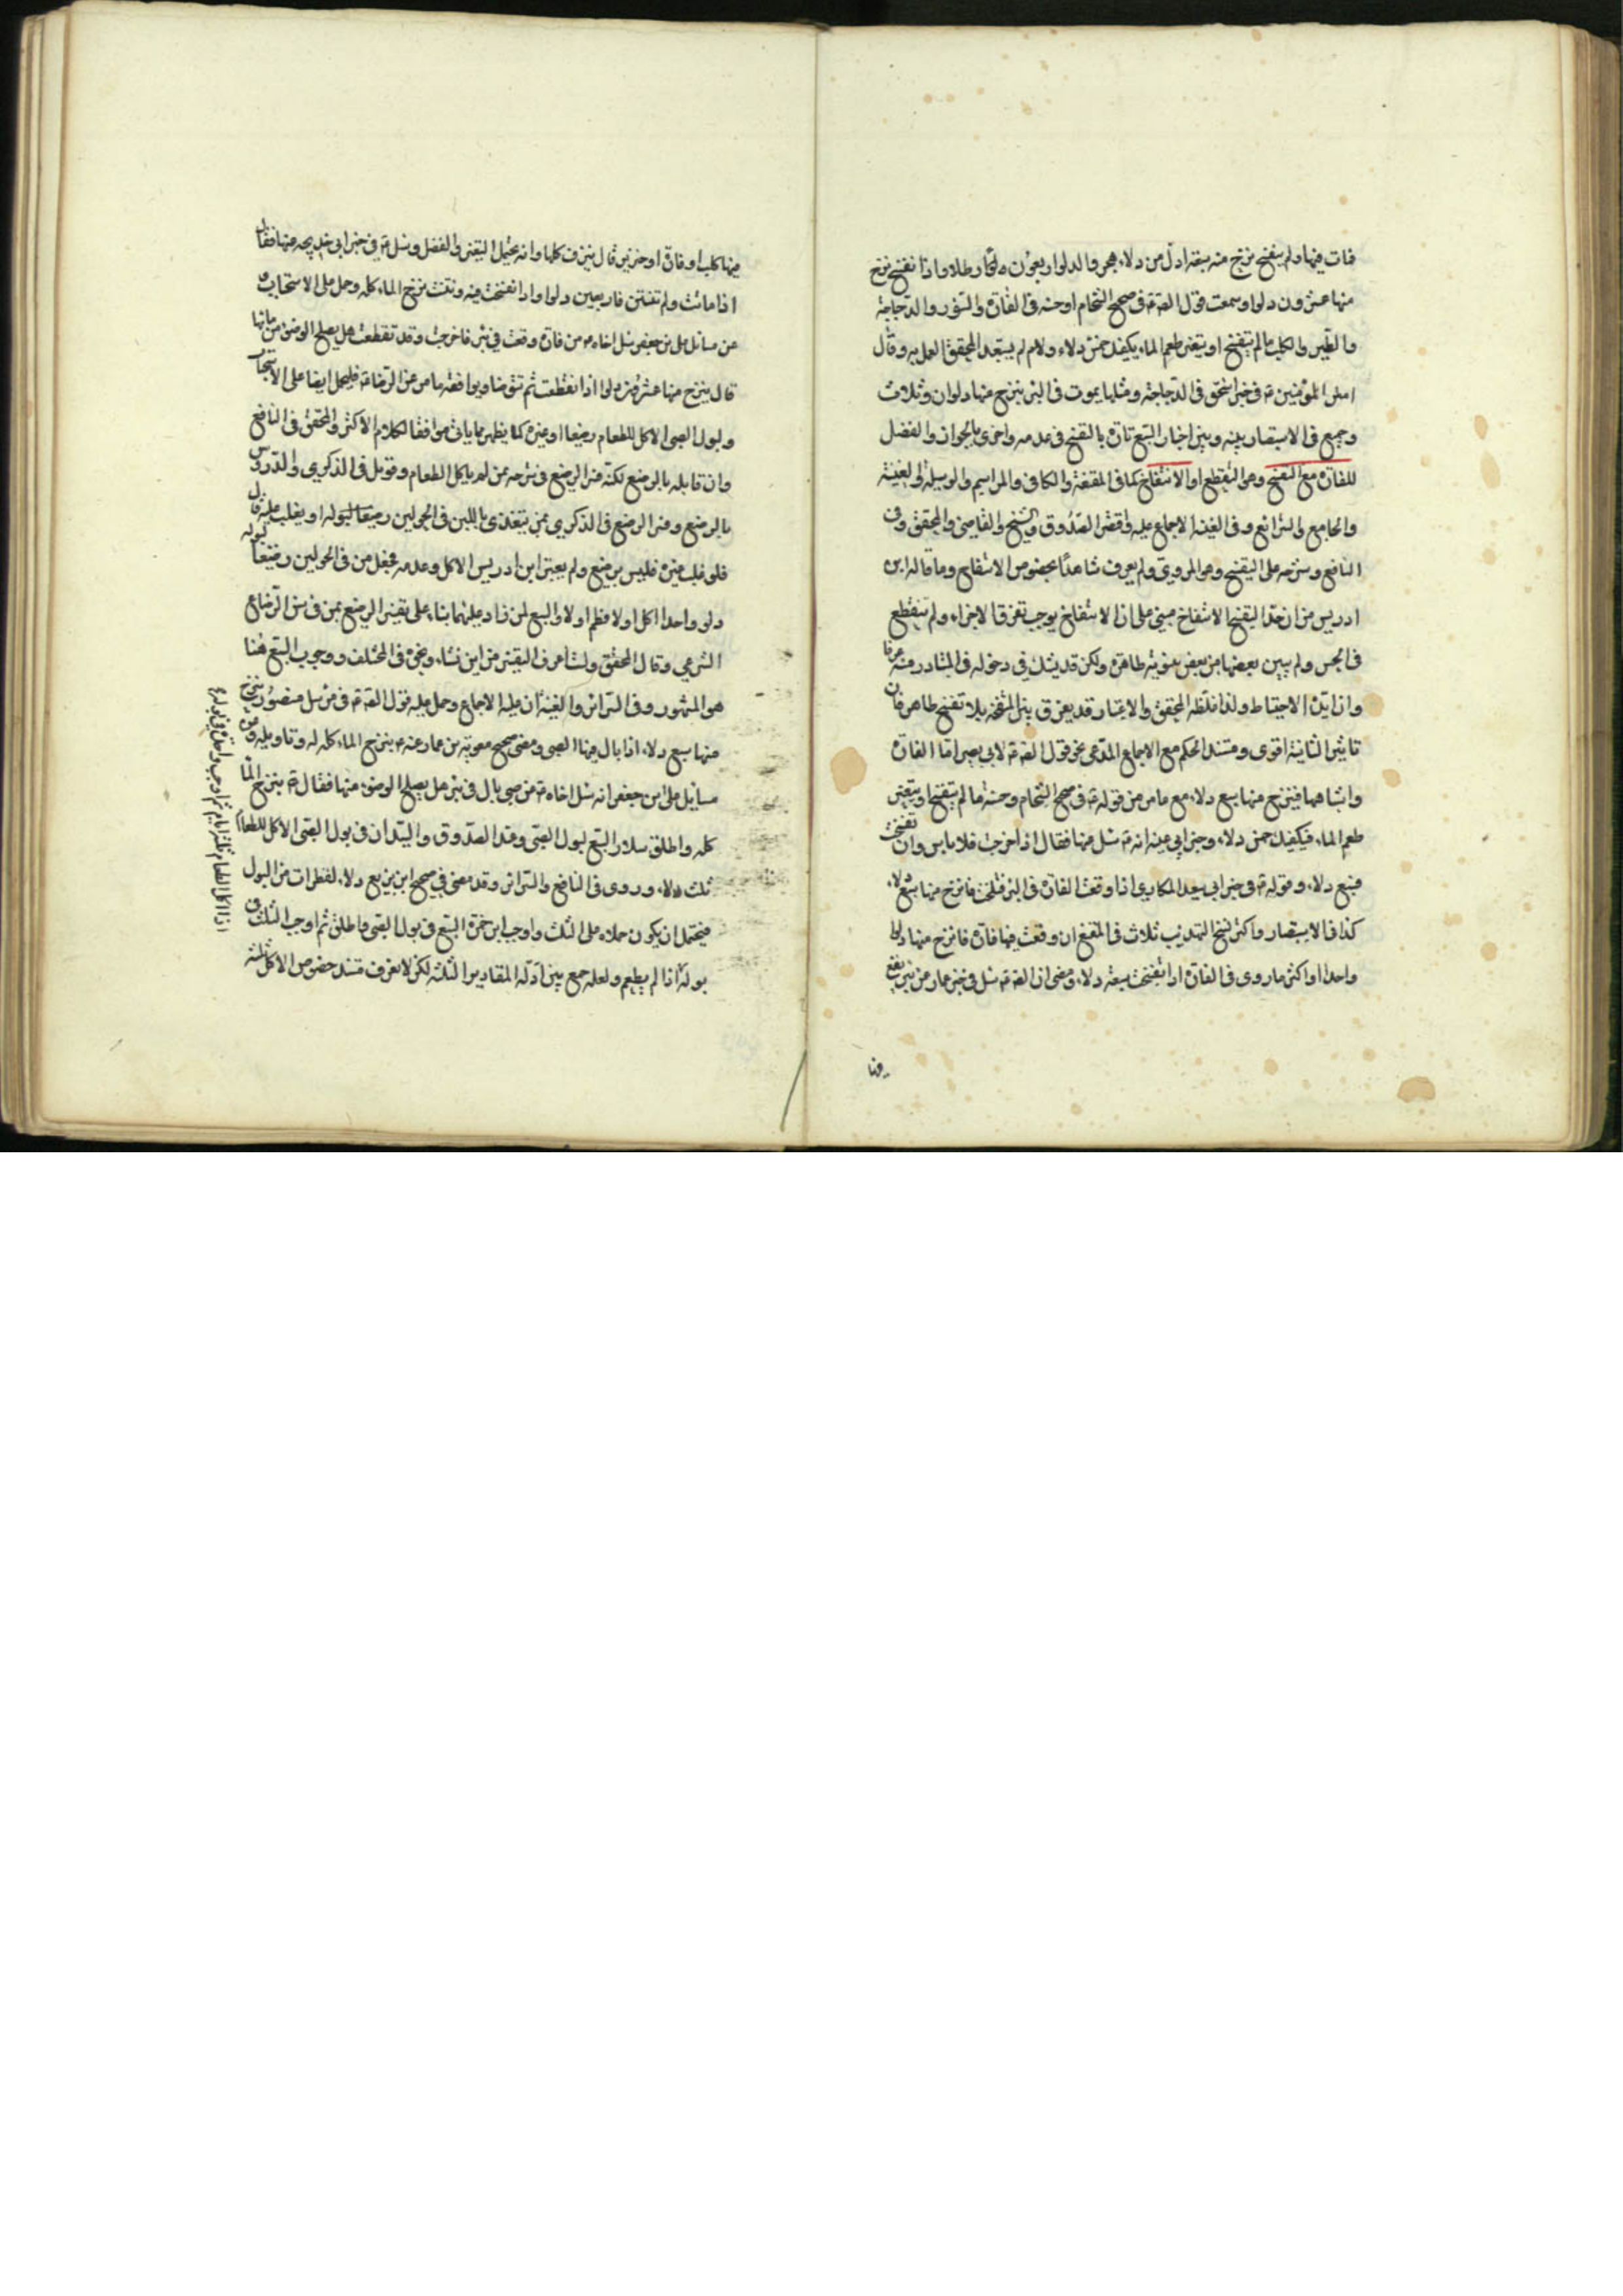 فمات فيها ولم يتفسخ نزح منه سبعة ادل من دلاء هجر والدلو اربعون رطلا واذا تفسخ نزح
منها عشرون دلوا وسمعت قول الصادق ع في صحيح الشحام او حسنه في الفارة والسنور والدجاجة
والطير والكلب ما لم يتفسخ او يتغير طعم الماء يكفيك خمس دلاء ولام لم يستبعد المحقق العمل به وقال
امير المؤمنين ع في خبر اسحق في الدجاجة ومثلها يموت في البئر ينزح منها دلوان وثلاث
وجمع في الاستبصار بينه وبين اخبار السبع تارة بالتفسخ في عدمه واخرى بالجواز والفضل
للفارة مع التفسخ وهو التقطع او الانتفاخ كما في المقنعة والكافي والمراسم والوسيلة والغنية
والجامع والشرائع وفي الغنية الاجماع عليه واقتصر الصدوق والشيخ والقاضي والمحقق في
النافع وشرحه على التفسخ وهو المروي ولم يعرف شاهدا بخصوص الانتفاخ وما قاله ابن
ادريس من ان حد التفسخ الانتفاخ مبني على ان الانتفاخ يوجب تفرق الاجزاء ولم ينقطع
في الحس ولم يبين بعضها من بعض بينونة ظاهرة ولكن قد يشك في دخوله في المتبادر منه عرفا
وان ايده الاحتياط ولذا غلطه المحقق والاعتبار قد يفرق بين المنتفخة بلا تفسخ ظاهر فان
تاثير الثانية اقوى ومستند الحكم مع الاجماع المدعى نحو قول الصادق ع لابي بصير اما الفارة
واشباهها فينزح منها سبع دلاء مع ما مر من قوله ع في صحيح الشحام وحسنه ما لم يتفسخ او يتغير
طعم الماء فيكفيك خمس دلاء وخبر ابي عيينه انه ع سئل عنها فقال اذا خرجت فلا باس وان تفسخت
فسبع دلاء وقوله ع في خبر ابي سعيد المكاري اذا وقعت الفارة في البئر فتسلخت فانزح منها سبع دلاء
كذا في الاستبصار واكثر نسخ التهذيب ثلاث في المقنع ان وقعت فيها فارة فانزح منها دلوا
واحدا واكثر ما روى في الفارة اذا تفسخت سبعة دلاء ومضى ان الصادق ع سئل في خبر عمار عن بئر يقع
فيها
فيها كلب او فارة او خنزير قال ينزف كلها وانه يحتمل التغير والفضل وسئل ع في خبر ابي خديجه عنها فقال
اذا ماتت ولم تنتن فاربعين دلوا واذا انتفخت فيه ونتنت نزح الماء كله وحمل على الاستحباب و
عن مسائل علي بن جعفر سئل اخاه ع عن فارة وقعت في بئر فاخرجت وقد تقطعت هل يصلح الوضوء من مائها
قال ينزح منها عشرون دلوا اذا تقطعت ثم تتوضا ويوافقه ما مر عن الرضا ع فليحمل ايضا على الاستحباب
ولبول الصبى الاكل للطعام رضيعا او غيره كما يظهر مما ياتي موافقا لكلام الاكثر والمحقق في النافع
وان قابله بالرضيع لكنه فسر الرضيع في شرحه بمن لم ياكل الطعام وقوبل في الذكرى والدروس
بالرضيع وفسر الرضيع في الذكرى بمن يتغذى باللبن في الحولين رضيعا لبوله او يغلب عليه قال
فلو غلب غيره فليس برضيع ولم يعتبر ابن ادريس الاكل وعدمه فجعل من في الحولين رضيعا لبوله
دلو واحد اكل او لا فطم او لا والسبع لمن زاد عليهما بناء على تفسير الرضيع بمن في سن الرضاع
الشرعي وقال المحقق ولست اعرف التفسير من اين نشاء ونحوه في المختلف ووجوب السبع هنا
هو المشهور وفي السرائر والغنية ان عليه الاجماع وحمل عليه قول الصادق ع في مرسل منصور ينزح
منها سبع دلاء اذا بال فيها الصبى ومضى صحيح معوية بن عمار عنه ع ينزح الماء كله له وتاويله وعن
مسايل علي بن جعفر انه سئل اخاه ع عن صبي بال في بئر هل يصلح الوضوء منها فقال ع ينزح الماء
كله واطلق سلار السبع لبول الصبي وعند الصدوق والسيد ان في بول الصبى الاكل للطعام
ثلث دلاء وروى في النافع والسرائر وقد مضى في صحيح ابن بزيع دلاء لقطرات من البول
فيحتمل ان يكون حملاه على الثلث واوجب ابن حمزة السبع في بول الصبي واطلق ثم اوجب الثلث في
بوله اذا لم يطعم ولعله جمع بين ادلة المقادير الثلثة لكن لا نعرف مستند خصوص الاكل ثلثة